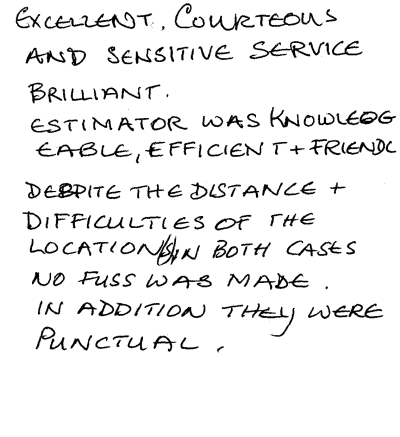 EXCELLENT, COURTEOUS
AND SENSITIVE SERVICE
BRILLIANT.
ESTIMATOR WAS KNOWLEDG
EABLE, EFFICIENT + FRIENDL
DESPITE THE DISTANCE +
DIFFICULTIES OF THE
LOCATION(S) IN BOTH CASES
NO FUSS WAS MADE.
IN ADDITION THEY WERE
PUNCTUAL.